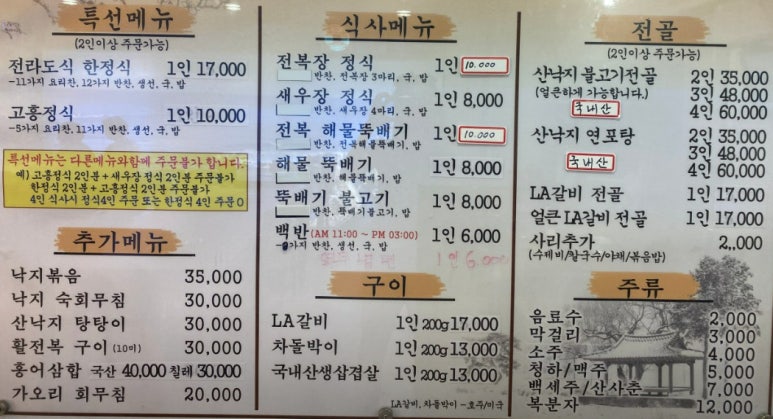 특선메뉴
(2인이상 주문가능)
전라도식 한정식 1인 17,000
-11가지 요리찬, 12가지 반찬, 생선, 국, 밥
고흥정식 1인 10,000
-5가지 요리찬, 11가지 반찬, 생선, 국, 밥
특선메뉴는 다른메뉴와함께 주문불가 합니다.
예) 고흥정식 2인분 + 새우장 정식 2인분 주문불가
한정식 2인분 + 고흥정식 2인분 주문불가
4인 식사시 정식4인 주문 또는 한정식 4인 주문 O
추가메뉴
낙지볶음 35,000
낙지 숙회무침 30,000
산낙지 탕탕이 30,000
활전복 구이 (10미) 30,000
홍어삼합 국산 40,000 칠레 30,000
가오리 회무침 20,000
식사메뉴
전복장 정식 1인 10.000
반찬, 전복장 3마리, 국, 밥
새우장 정식 1인 8,000
반찬, 새우장 4마리, 국, 밥
전복 해물뚝배기 1인 10.000
반찬, 전복해물뚝배기, 밥
해물 뚝배기 1인 8,000
반찬, 해물뚝배기, 밥
뚝배기 불고기 1인 8,000
반찬, 뚝배기불고기, 밥
백반 (AM 11:00 ~ PM 03:00) 1인 6,000
가지 반찬, 생선, 국, 밥
1인 6.000
구이
LA갈비 1인 200g 17,000
차돌박이 1인 200g 13,000
국내산생삼겹살 1인 200g 13,000
LA갈비, 차돌박이 - 호주/미국
전골
(2인이상 주문가능)
산낙지 불고기전골 2인 35,000
(얼큰하게 가능합니다.) 3인 48,000
국내산 4인 60,000
산낙지 연포탕 2인 35,000
3인 48,000
국내산 4인 60,000
LA갈비 전골 1인 17,000
얼큰 LA갈비 전골 1인 17,000
사리추가 2,000
(수제비/칼국수/야채/볶음밥)
주류
음료수 2,000
막걸리 3,000
소주 4,000
청하/맥주 5,000
백세주/산사춘 7,000
복분자 12,000